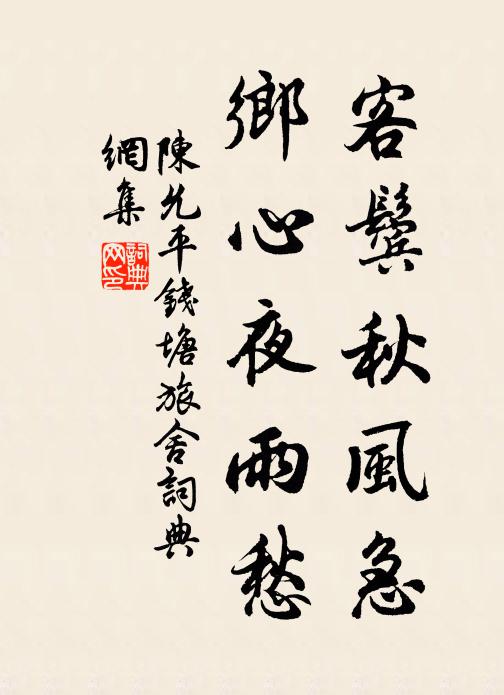 客鬢秋風急
鄉心夜雨愁
陳允平錢塘旅舍詞典
網集
詞典網印